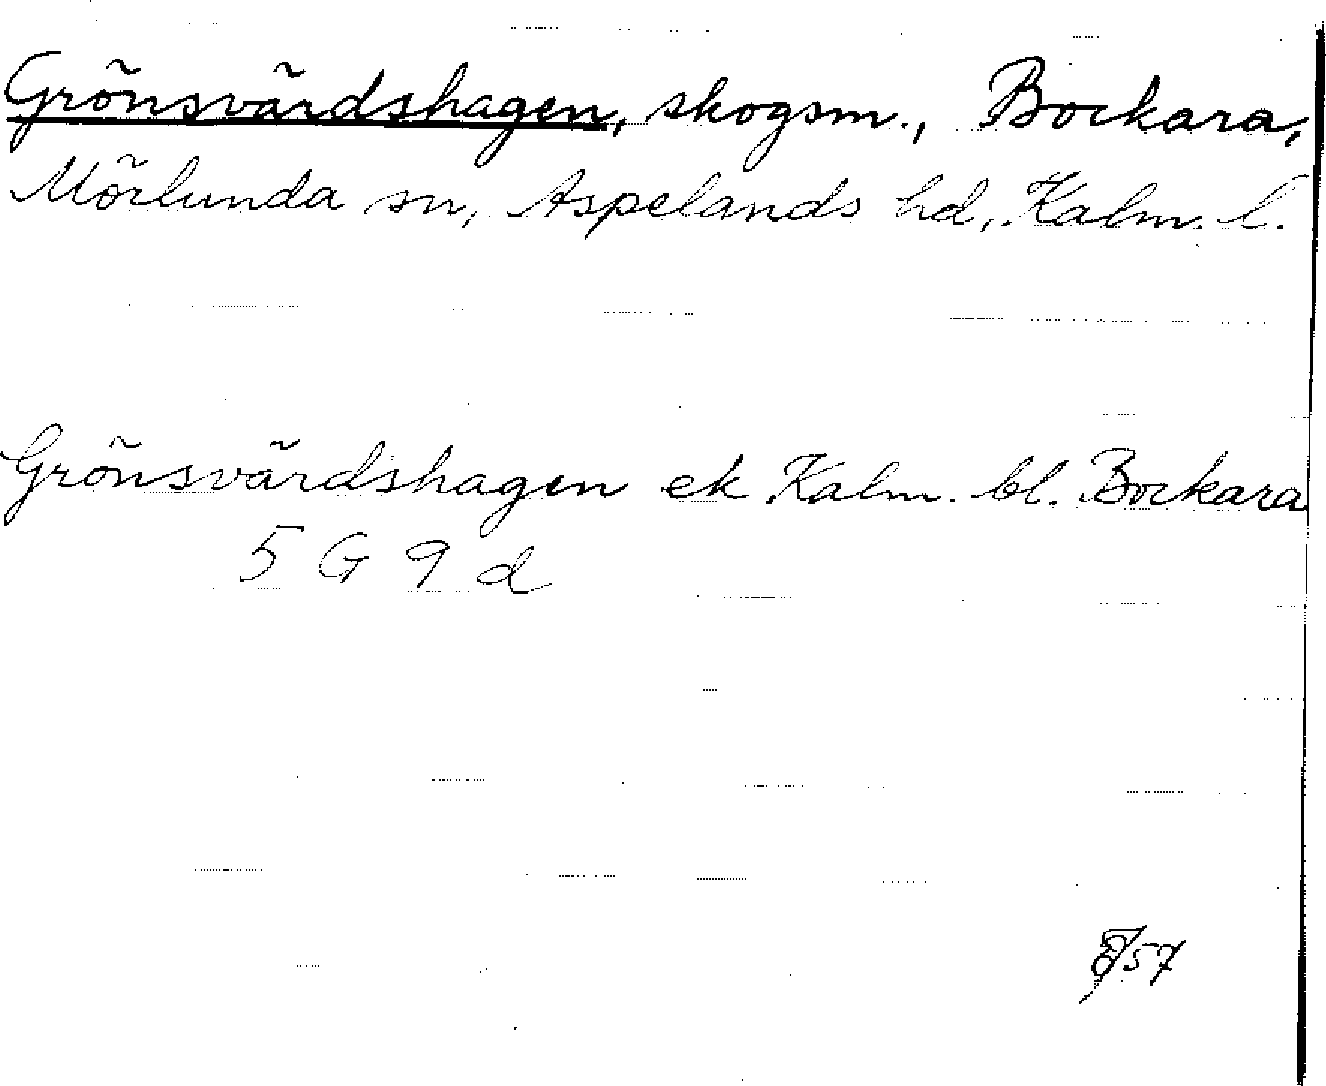 Grönsvärdshagen, skogsm., Bockara,
Mörlunda sn, Aspelands hd, Kalm. l.
Grönsvärdshagen ek Kalm. bl. Bockara
5 G 9 d
57